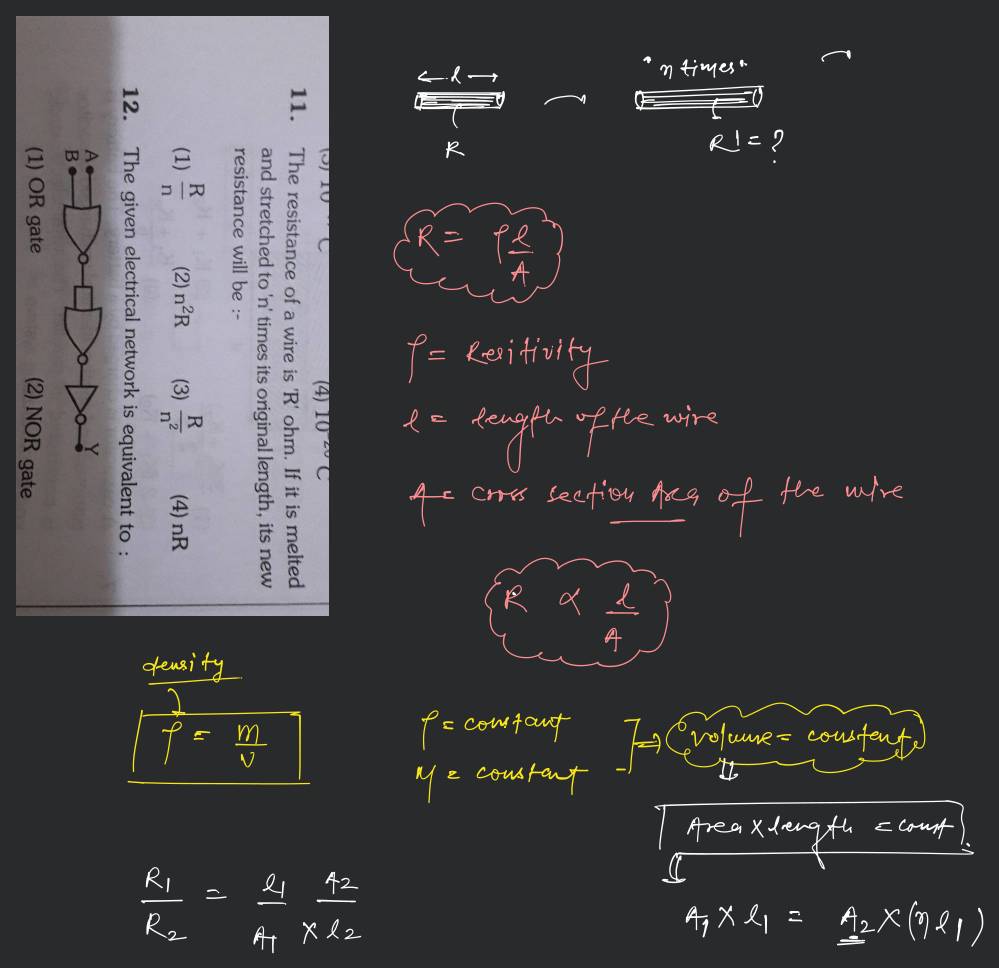 (3) 10 C (4) 10 C
11. The resistance of a wire is 'R' ohm. If it is melted
and stretched to 'n' times its original length, its new
resistance will be :-
(1) R/n (2) n²R (3) R/n² (4) nR
12. The given electrical network is equivalent to :
A
B
Y
(1) OR gate (2) NOR gate
l
R
"n times"
R' = ?
R = ρl/A
ρ = Resitivity
l = length of the wire
A = cross section Area of the wire
R ∝ l/A
density
ρ = m/v
ρ = constant
M = constant
⇒ volume = constant
Area × length = const
R₁/R₂ = l₁/A₁ × A₂/l₂
A₁ × l₁ = A₂ × (n l₁)